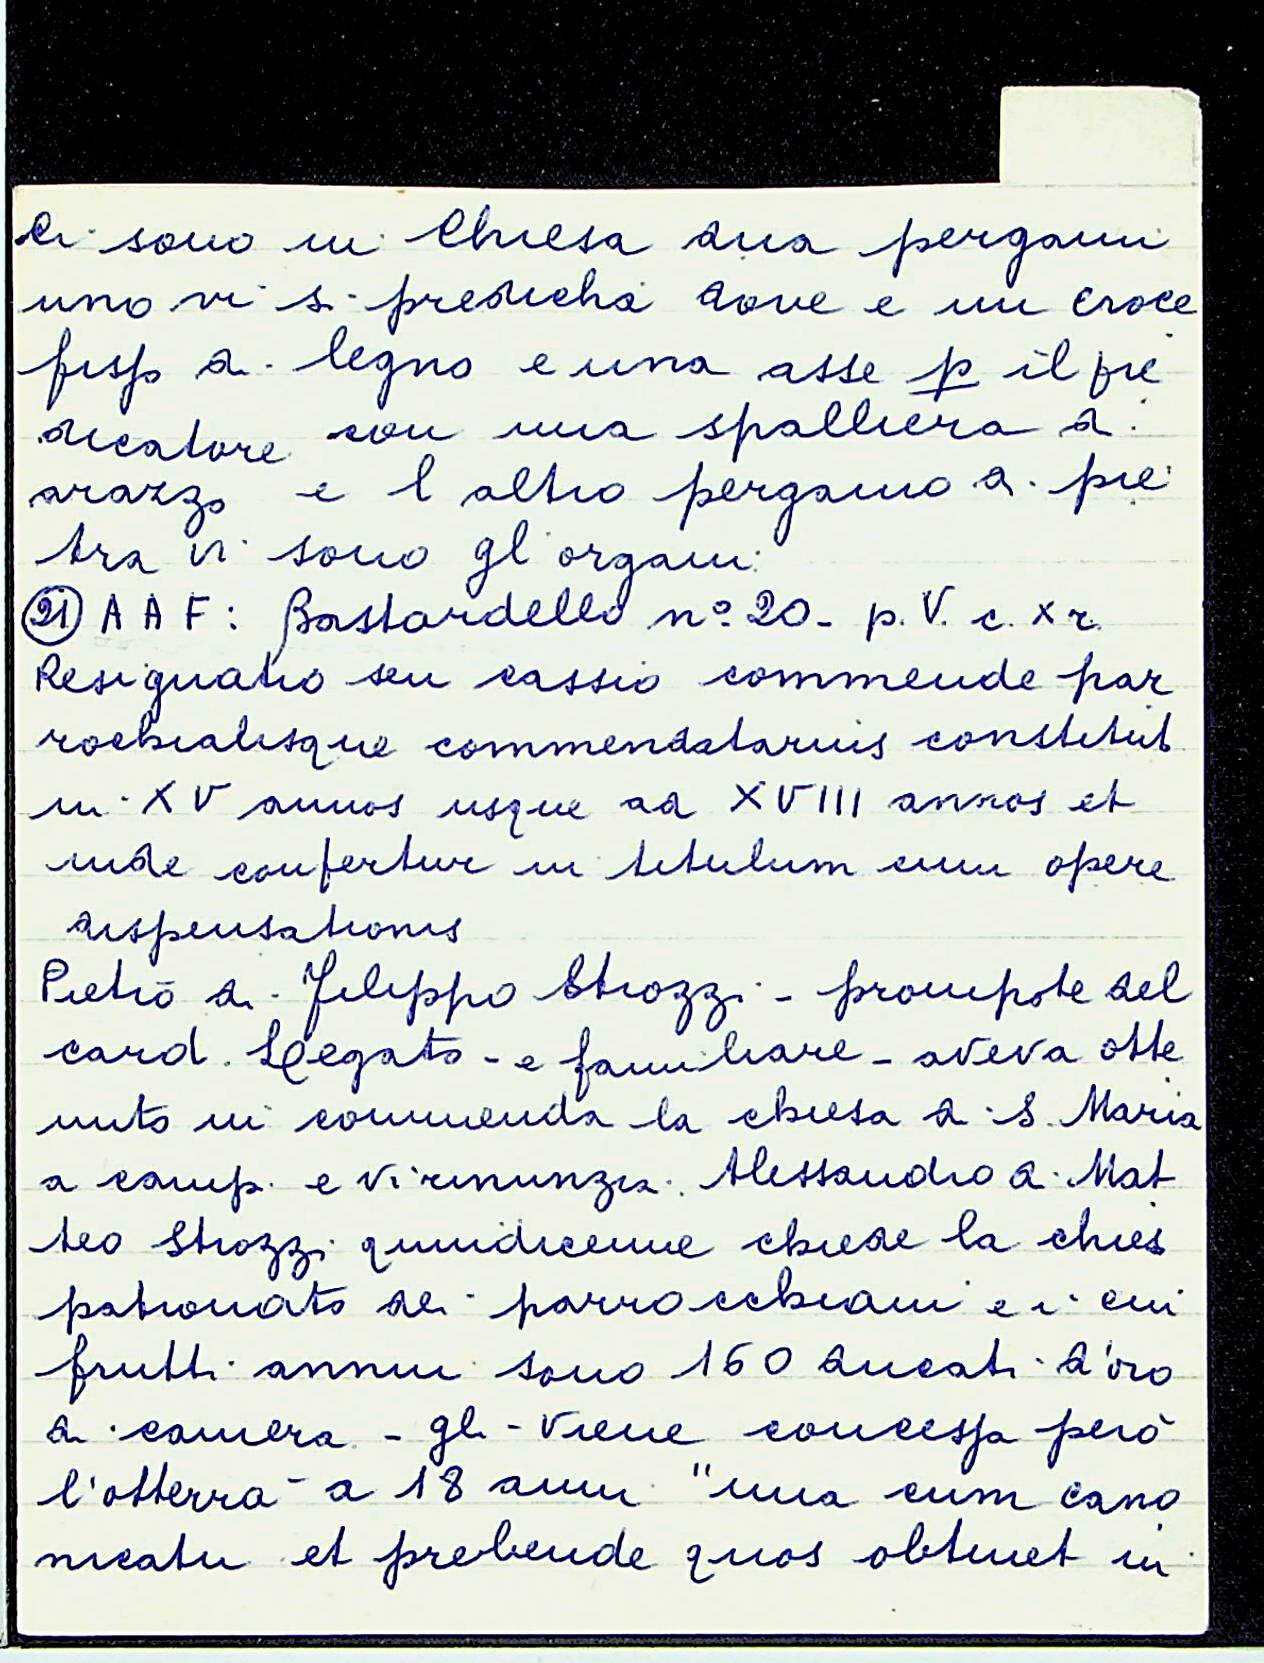 Ci sono in Chiesa dua pergami
uno vi si predicha dove e un croce
fisso di legno e una asse p il pre
dicatore con una spalliera di
arazzo e l altro pergamo di pie
tra vi sono gl'organi
(21) A A F: Bastardello n° 20 - p. V. c. X r.
Resignatio seu cassio commende par
rochialisque commendatariis constitut
in XV annos usque ad XVIII annos et
inde confertur in titulum cum opere
dispensationis
Pietro di Filippo Strozzi - pronipote del
card. Legato - e familiare - aveva otte
nuto in commenda la chiesa di S. Maria
a campi e vi rinunzia. Alessandro di Mat
teo Strozzi quindicenne chiede la chies
patronato dei parrocchiani e i cui
frutti annui sono 160 ducati d'oro
di camera - gli - viene concessa però
l'otterrà a 18 anni "una cum cano
nicatu et prebende quos obtinet in